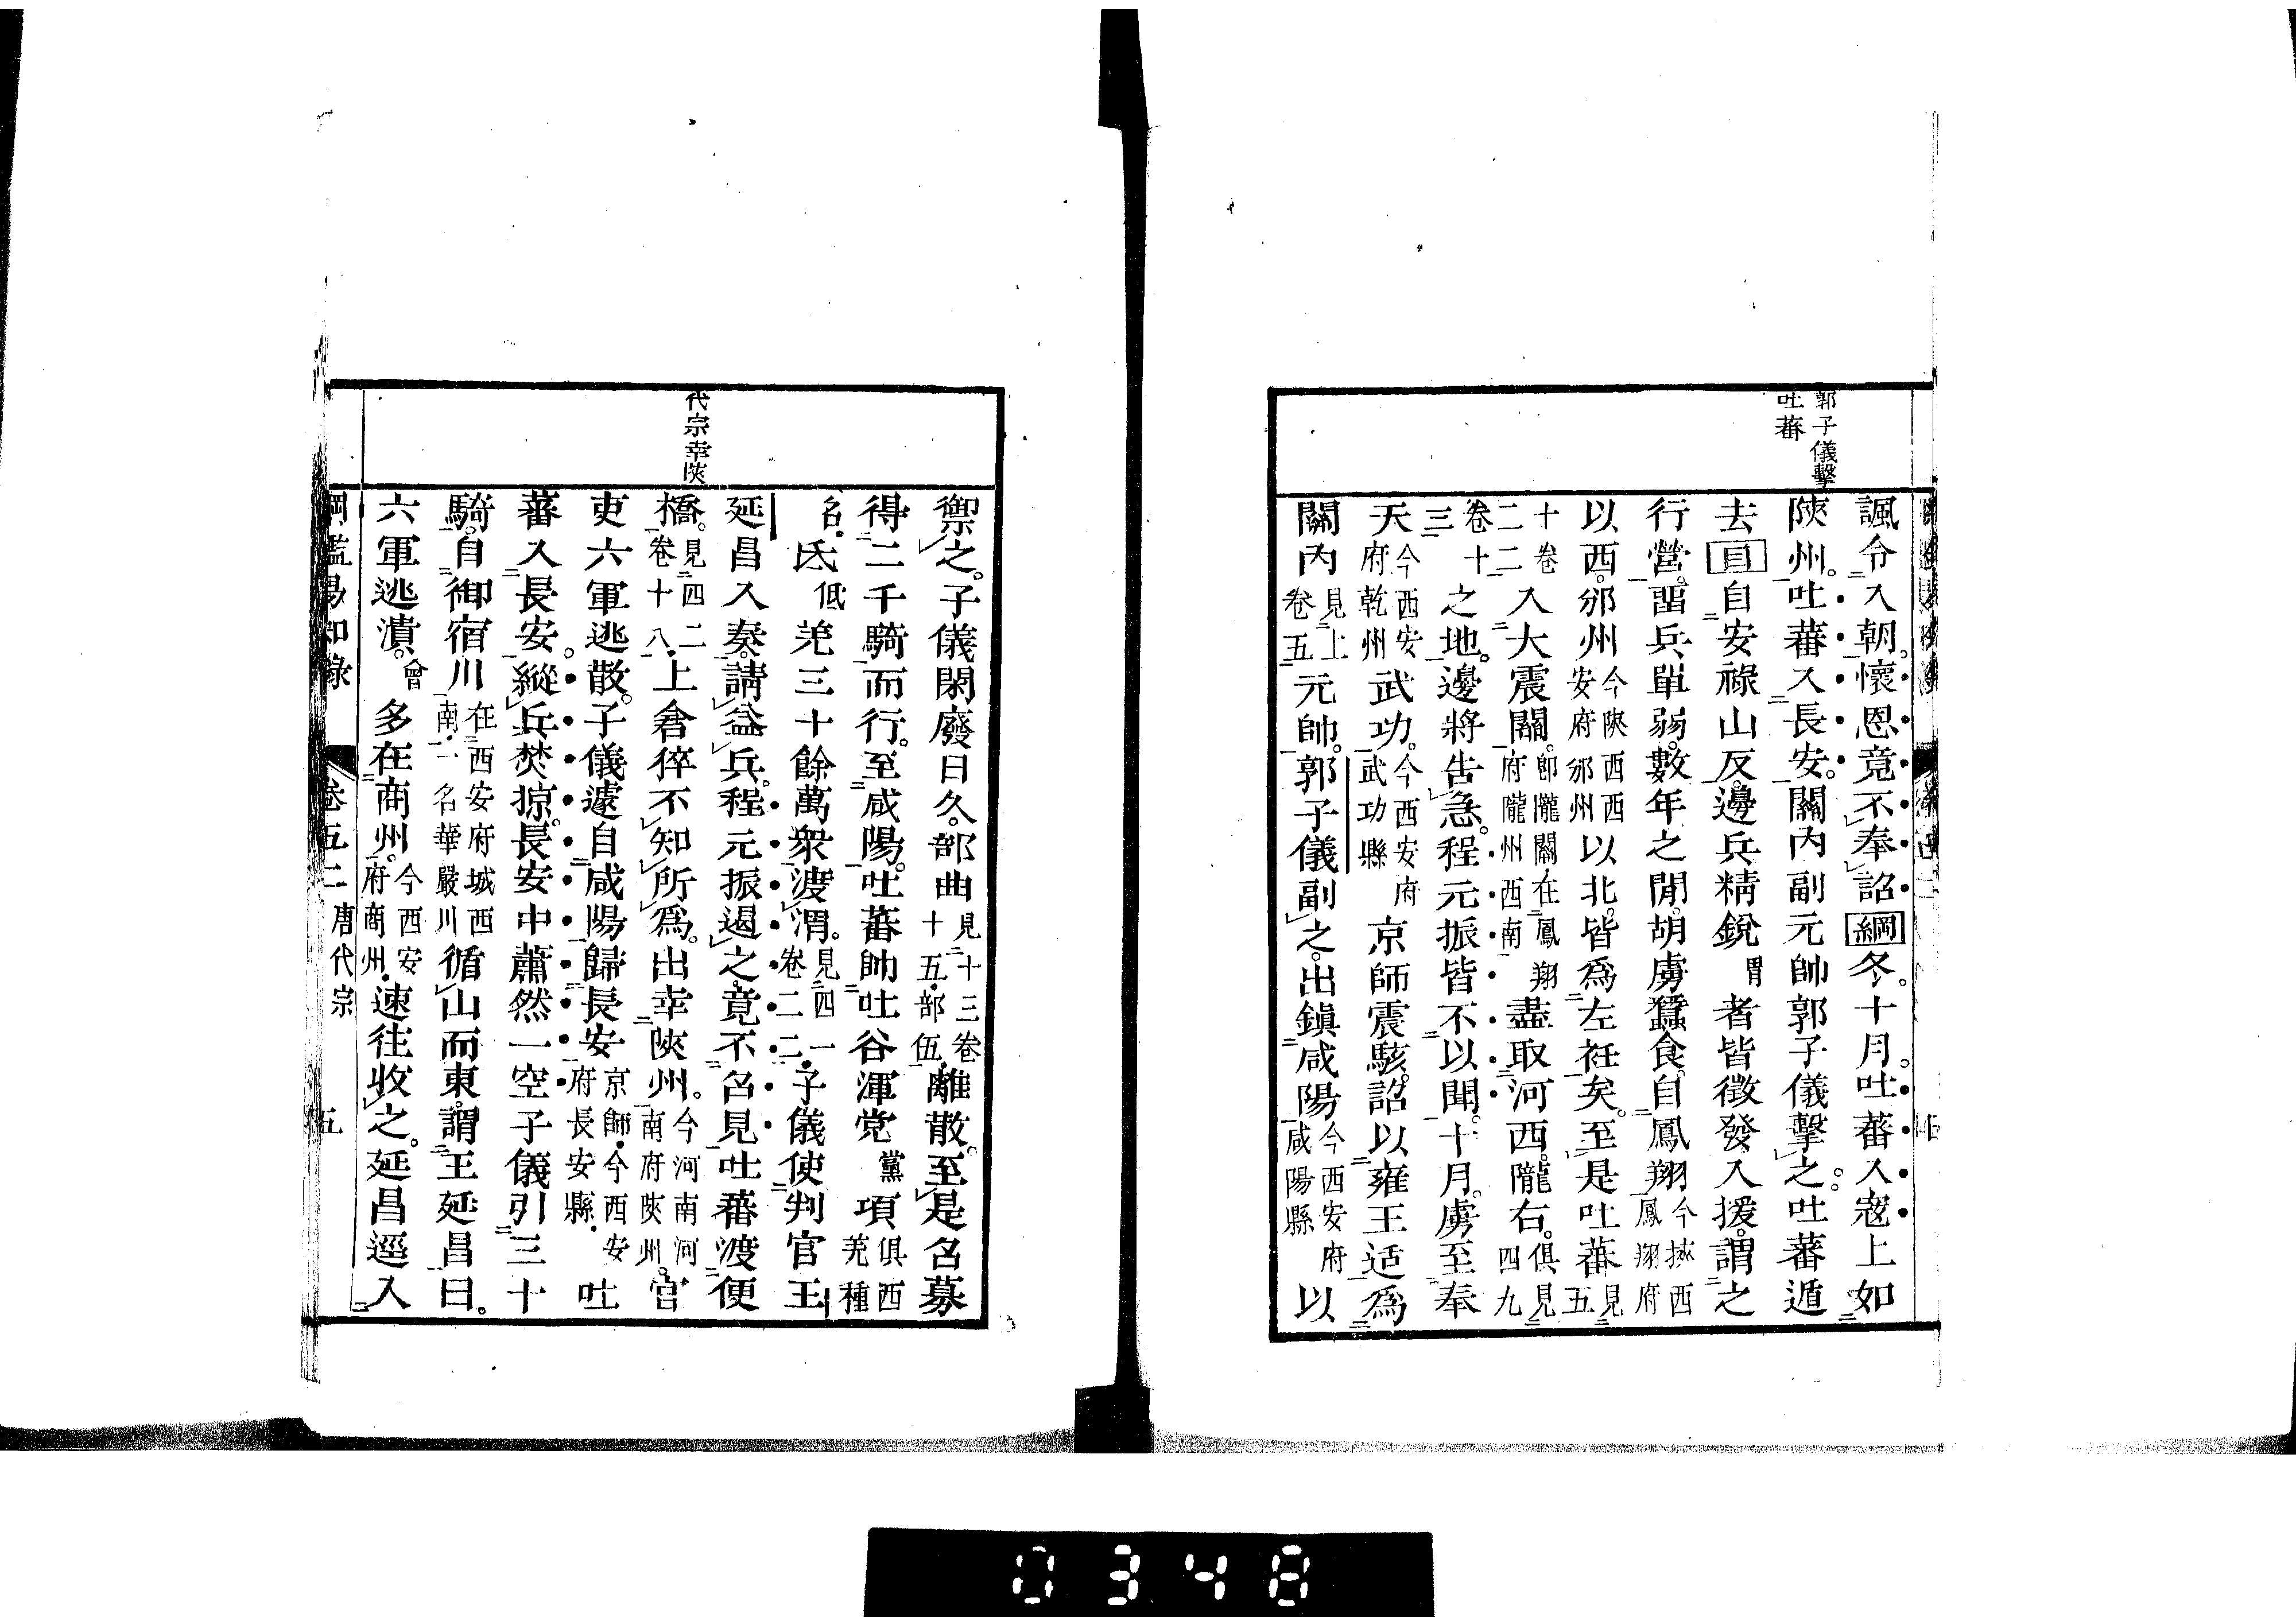 郭子儀擊
吐蕃
諷令入朝。懷恩竟不奉詔綱冬。十月。吐蕃入寇上如
陝州。吐蕃入長安。關內副元帥郭子儀擊之。吐蕃遁
去目自安祿山反。邊兵精銳謂者皆徵發入援。謂之
行營。畱兵單弱。數年之閒。胡虜蠶食。自鳳翔今陝西鳳翔府
以西。邠州今陝西西安府邠州以北。皆爲左衽矣。至是吐蕃見五
十卷二二入大震關。卽隴關在鳳翔府隴州西南盡取河西。隴右。俱見四九
卷十三之地。邊將告急。程元振皆不以聞。十月。虜至奉
天今西安府乾州武功。今西安府武功縣京師震駭。詔以雍王适爲
關內見上卷五元帥。郭子儀副之。出鎭咸陽今西安府咸陽縣以
代宗幸陝
禦之。子儀閑廢日久。部曲見十三卷十五部伍離散。至是召募
得二千騎而行。至咸陽。吐蕃帥吐谷渾党黨項俱西羌種
名氐低羌三十餘萬衆渡渭。見四一卷二二子儀使判官王
延昌入奏。請益兵。程元振遏之。竟不召見吐蕃渡便
橋。見四二卷十八上倉猝不知所爲。出幸陝州。今河南河南府陝州官
吏六軍逃散。子儀遽自咸陽歸長安京師今西安府長安縣吐
蕃入長安。縱兵焚掠。長安中蕭然一空子儀引三十
騎。自御宿川在西安府城西南一名華嚴川循山而東。謂王延昌曰。
六軍逃潰。會多在商州。今西安府商州速往收之。延昌逕入
綱鑑易知錄 卷五二 唐代宗 五